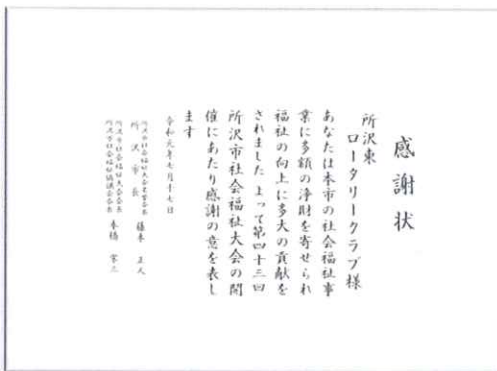 感謝状
所沢東
ロータリークラブ様
あなたは本市の社会福祉事
業に多額の浄財を寄せられ
福祉の向上に多大の貢献を
されました よって第四十三回
所沢市社会福祉大会の開
催にあたり感謝の意を表し
ます
令和元年七月十七日
所沢市社会福祉大会名誉会長
所沢市長 藤本 正人
所沢市社会福祉大会会長
所沢市社会福祉協議会会長 本橋